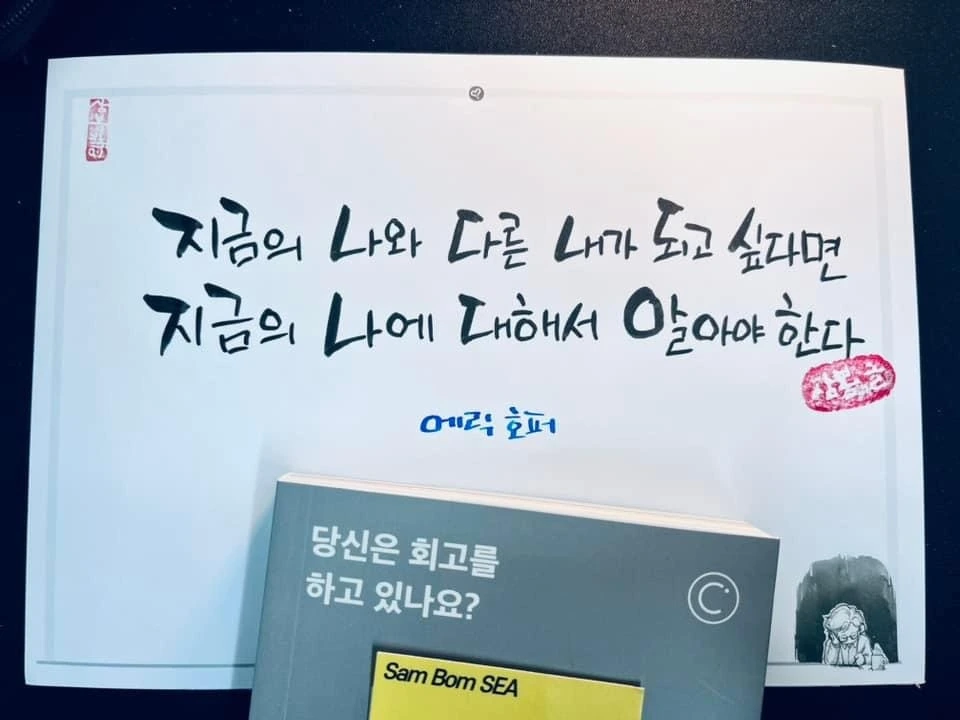 지금의 나와 다른 내가 되고 싶다면
지금의 나에 대해서 알아야 한다
에릭 호퍼
당신은 회고를
하고 있나요?
C
Sam Bom SEA